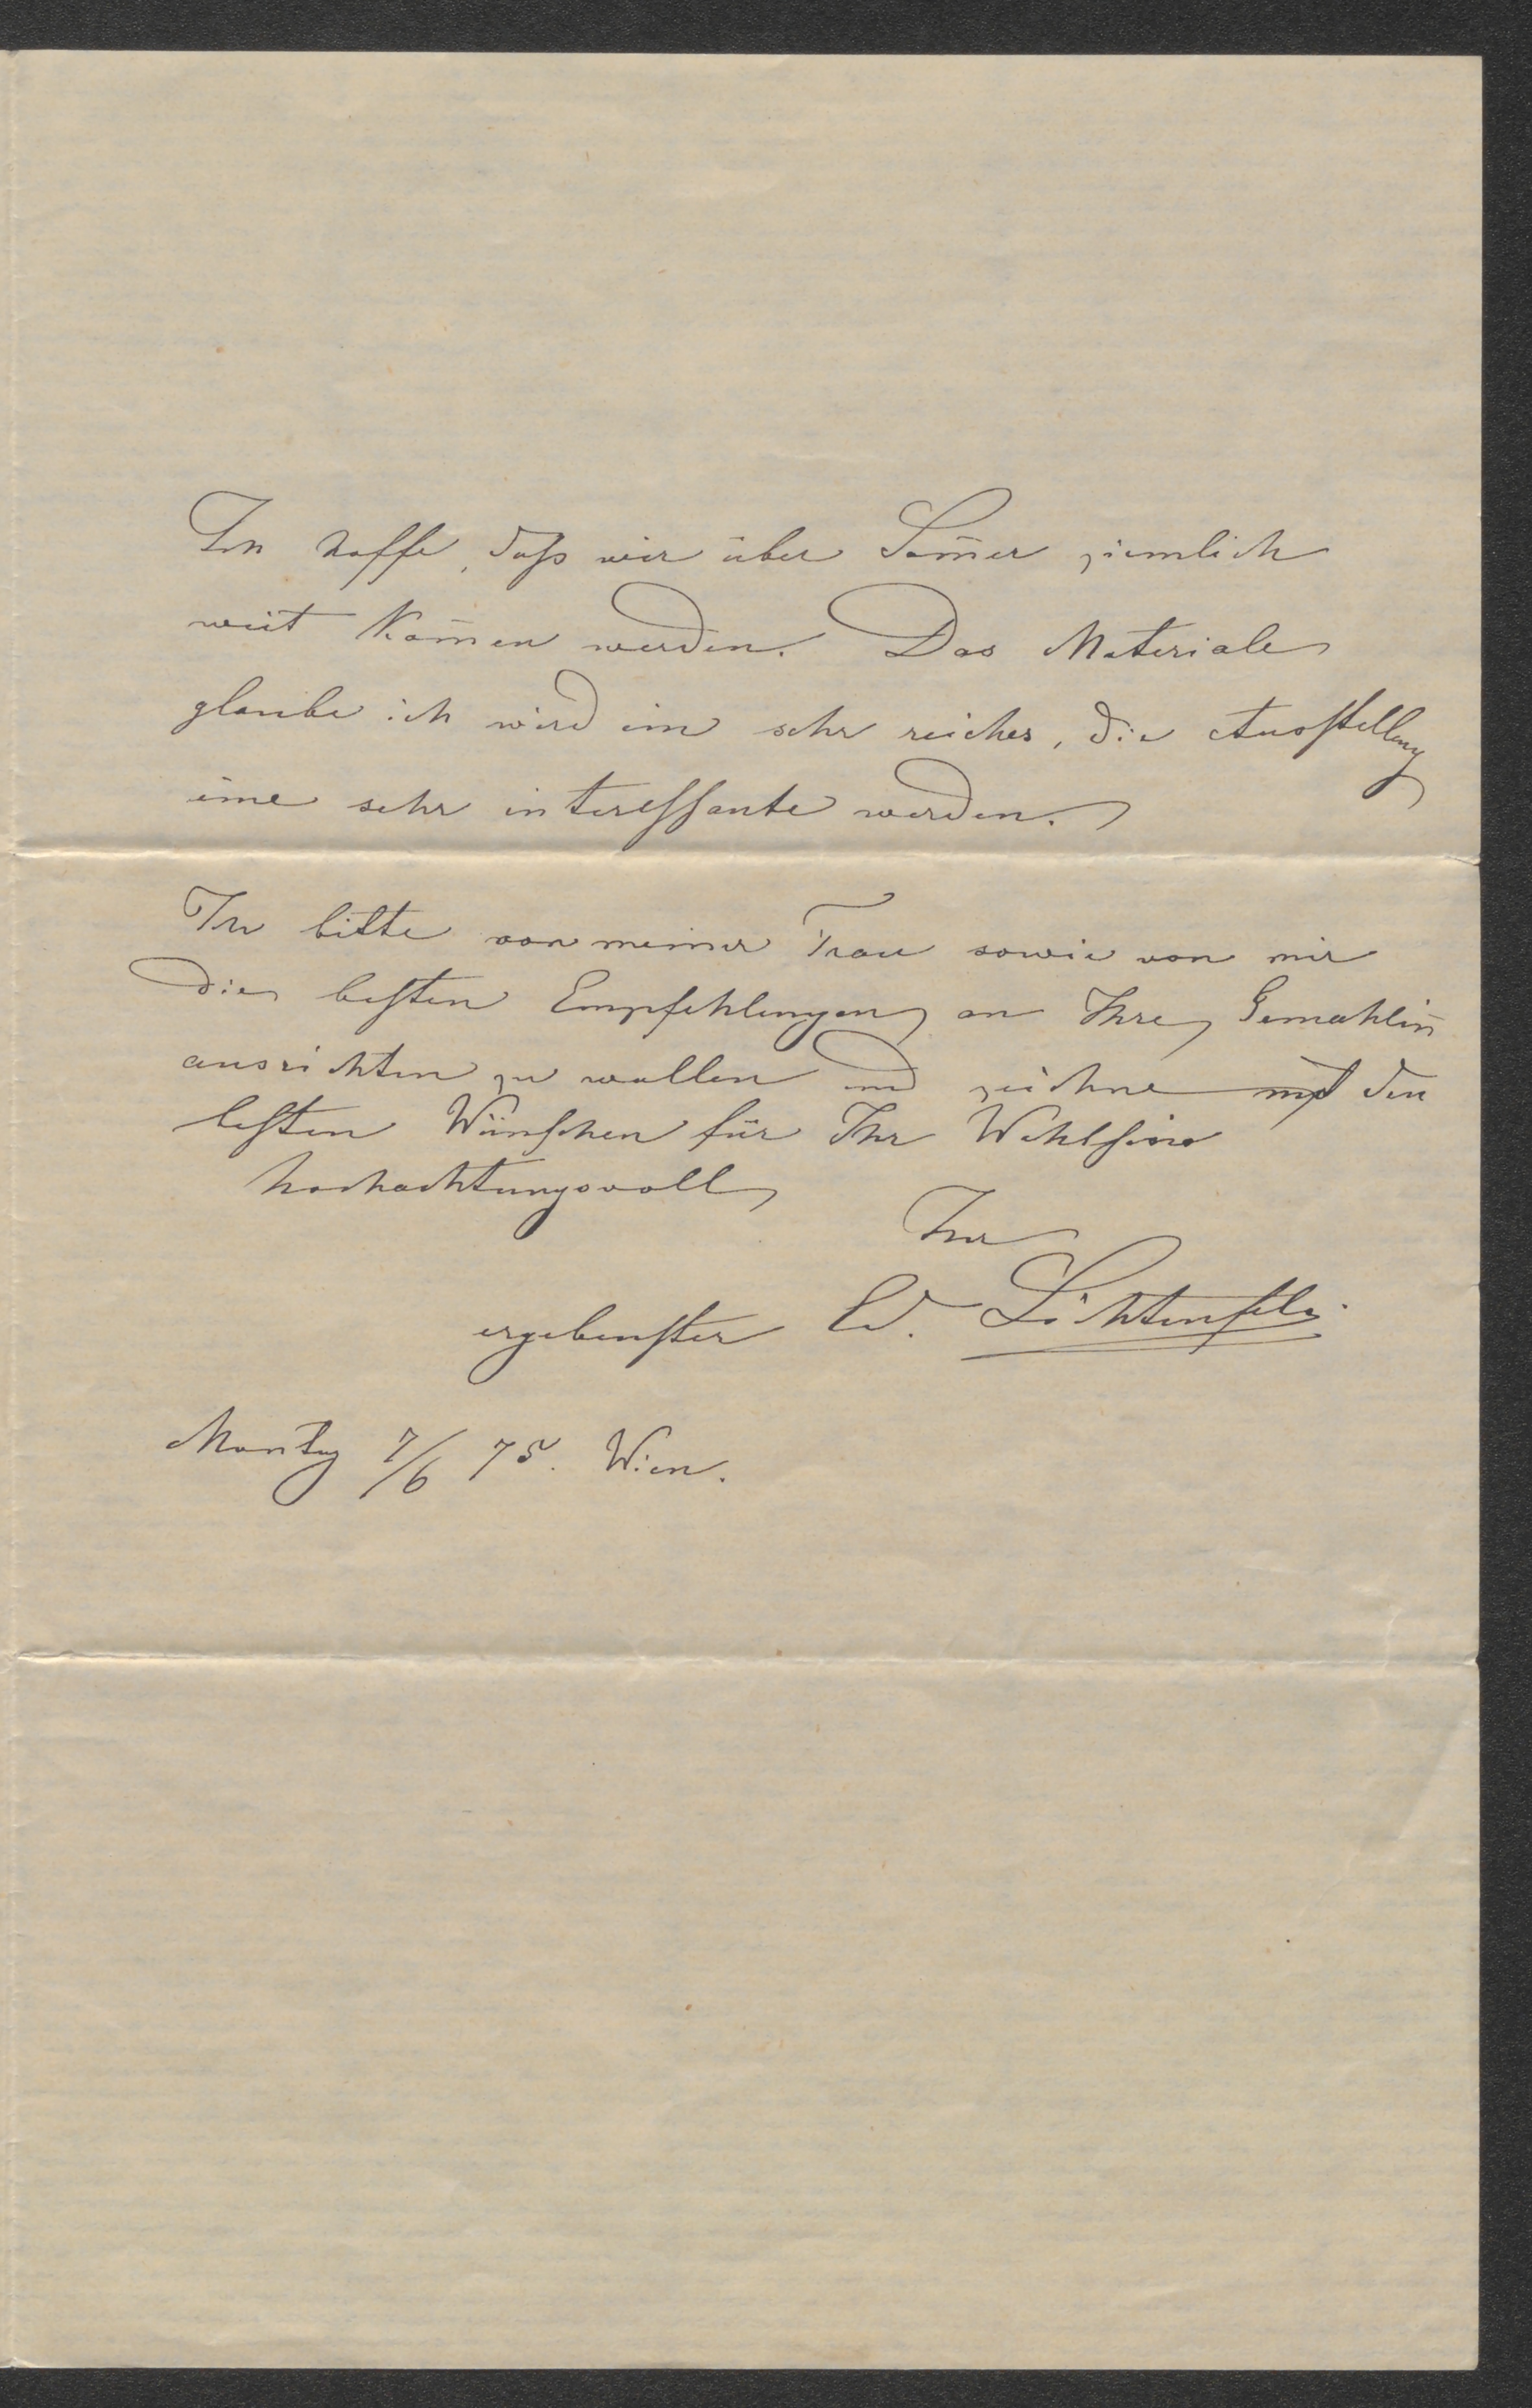 Ich hoffe, daß wir über Som̄er ziemlich
weit kom̄en werden. Das Materiale
glaube ich wird ein sehr reiches, die Ausstellung
eine sehr interessante werden.
Ich bitte von meiner Frau sowie von mir
die besten Empfehlungen an Ihre Gemahlin̄
ausrichten zu wollen und zeichne mit den
besten Wünschen für Ihr Wohlsein
hochachtungsvoll
Ihr
ergebenster Ed. Lichtenfels.
Montag 7/6 75. Wien.